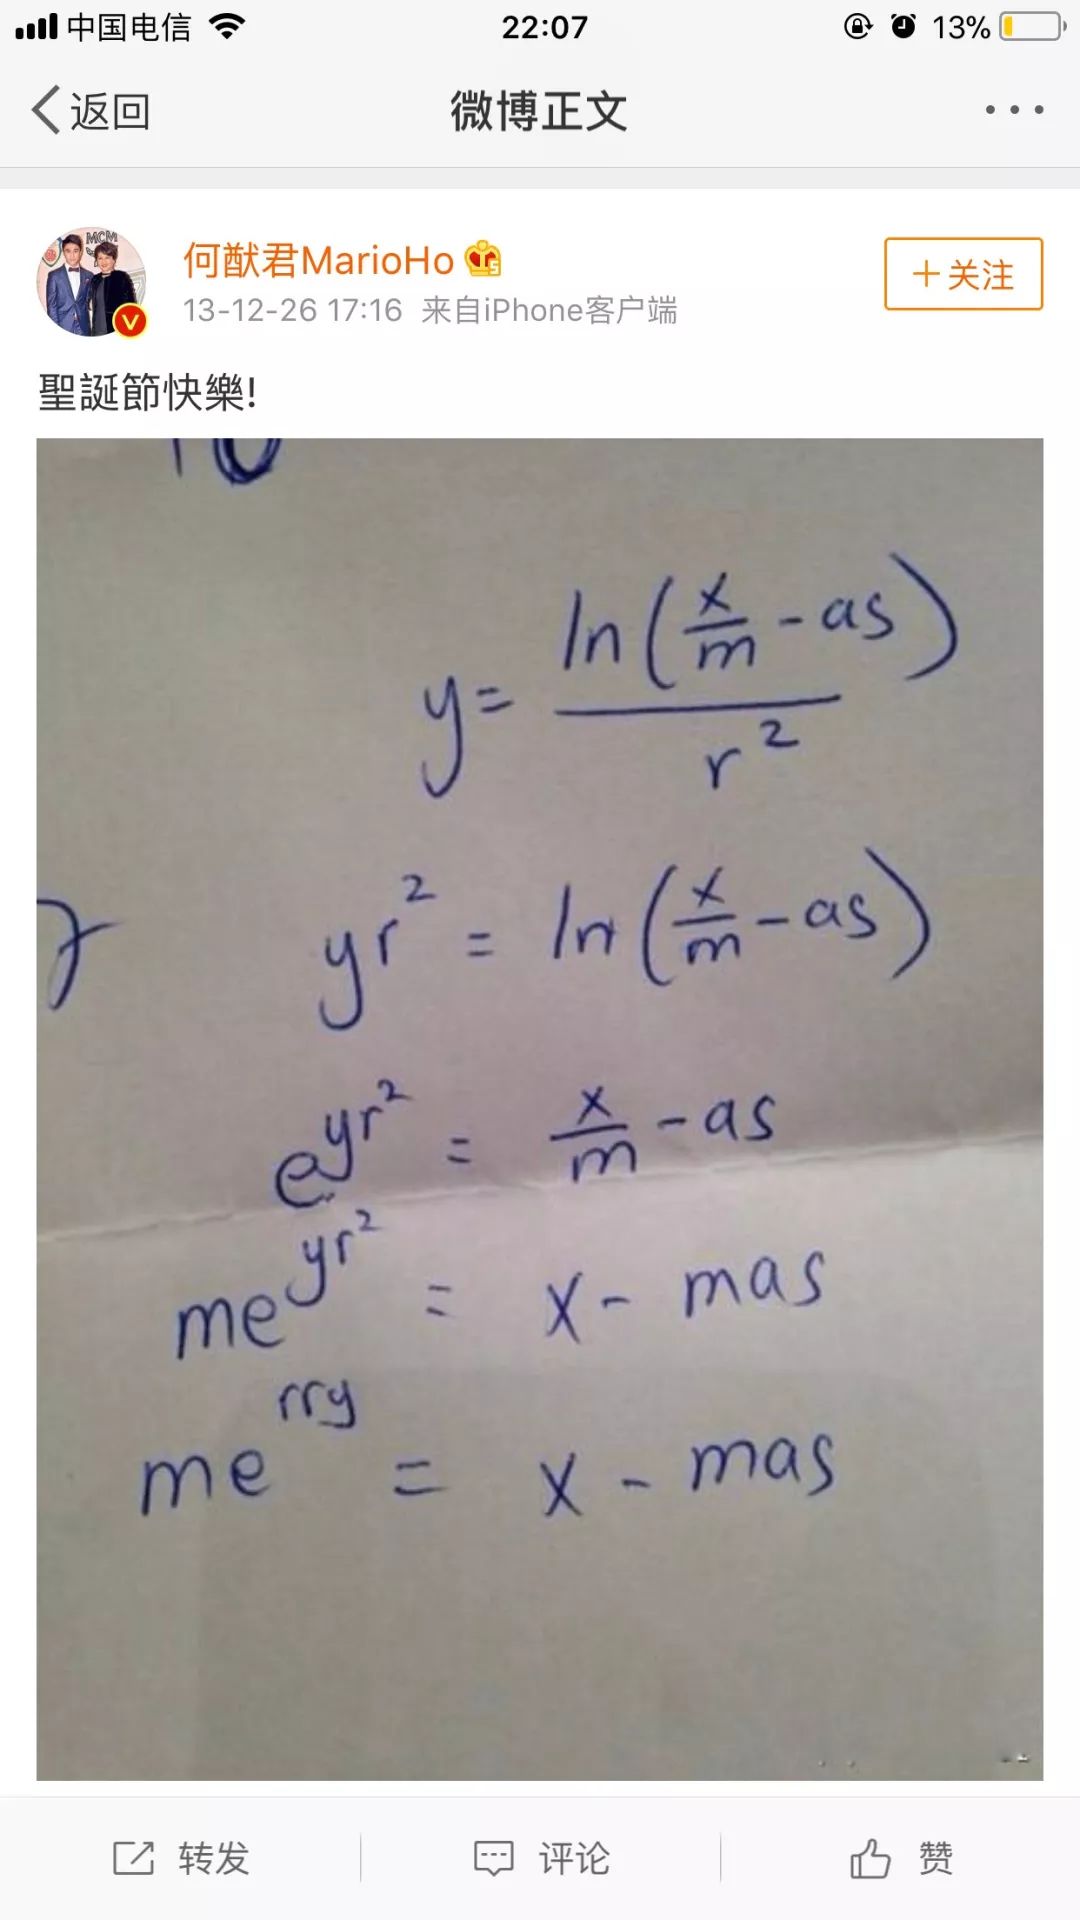 中国电信 22:07 13%
返回 微博正文
MCM
何猷君MarioHo
13-12-26 17:16 来自iPhone客户端
+关注
聖誕節快樂!
10
y = ln(x/m - as) / r²
yr² = ln(x/m - as)
e^yr² = x/m - as
me^yr² = x - mas
me^rry = x - mas
转发 评论 赞